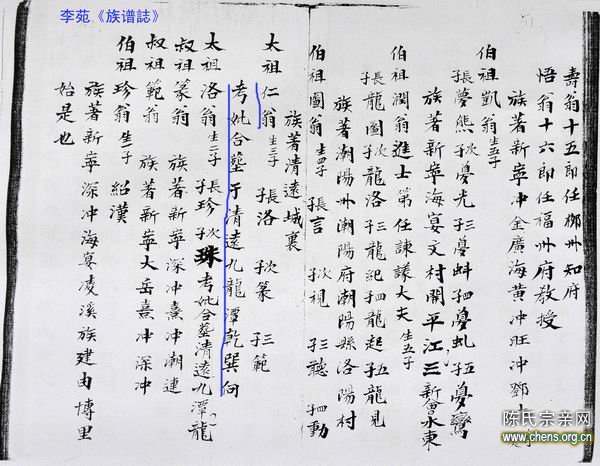 李苑《族谱誌》
壽翁十五郎任柳州知府
悟翁十六郎任福州府教授
族著新寧冲金廣海黄冲旺冲鄧
伯祖凱翁生五子
長夢熊次夢光三夢蚪四夢虬五夢鸞
族著新寧海宴文村開平江三新會水東
伯祖潤翁進士第任諫議大夫生五子
長龍圖次龍洛三龍紀四龍起五龍見
族著潮陽州潮陽府潮陽縣洛陽村
伯祖圖翁生四子 長言 次視 三聽 四動
族著清遠城裏
太祖仁翁生三子 長洛 次篆 三範
考妣合塟于清遠九龍潭乾巽向
太祖洛翁生二子 長珍 次珠 考妣合塟清遠九潭龍
叔祖篆翁 族著新寧深冲熹冲潮連
叔祖範翁 族著新寧大岳熹冲深冲
伯祖珍翁生一子 紹漢
族著新寧深冲海宴凌溪族建由博里
始是也
陈氏宗亲网
www.chens.org.cn